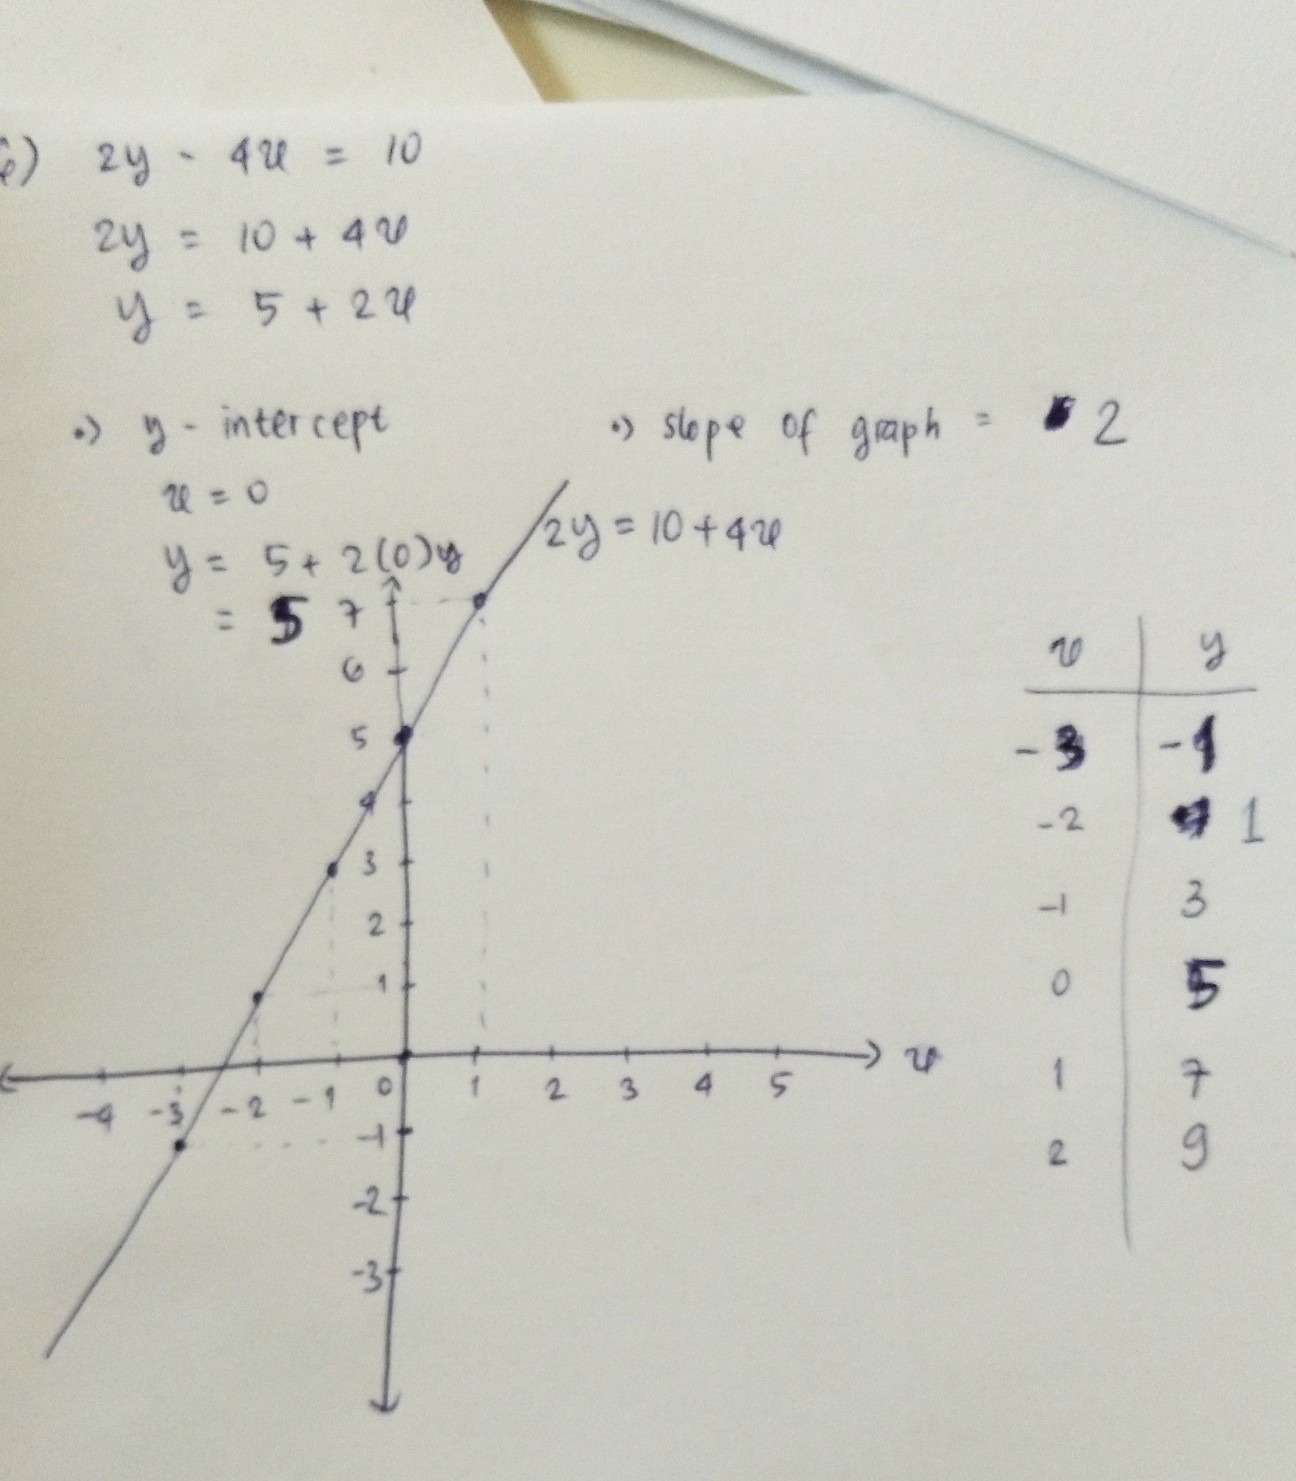 6) 2y - 4x = 10
2y = 10 + 4x
y = 5 + 2x
•) y-intercept
x = 0
y = 5 + 2(0)
= 5
•) slope of graph = 2
y
2y = 10 + 4x
7
6
5
4
3
2
1
-4 -3 -2 -1 0 1 2 3 4 5 x
-1
-2
-3
x y
-3 -1
-2 1
-1 3
0 5
1 7
2 9